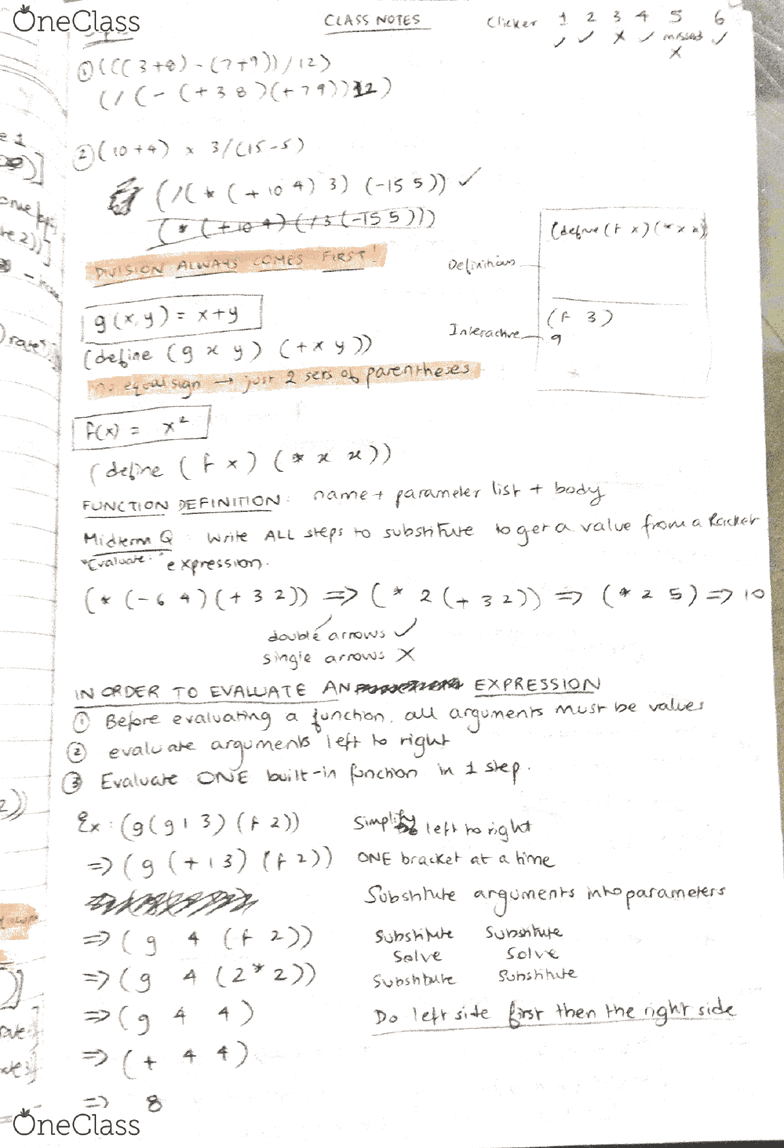 OneClass
CLASS NOTES
Clicker 1 2 3 4 5 6
✓ ✓ X ✓ missed ✓
X
① (((3+8) - (7+9))/12)
(/ (- (+ 3 8) (+ 7 9)) 12)
② (10+4) x 3/(15-5)
(/(* (+ 10 4) 3) (-15 5)) ✓
(* (+10 4) (/3 (-15 5)))
DIVISION ALWAYS COMES FIRST!
Definitions
(define (f x) (* x x))
Interactive
(f 3)
9
g(x,y) = x+y
(define (g x y) (+ x y))
no equal sign → just 2 sets of parentheses
f(x) = x²
(define (f x) (* x x))
FUNCTION DEFINITION: name + parameter list + body
Midterm Q: Write ALL steps to substitute to get a value from a Racket
"Evaluate" expression.
(* (-6 4) (+ 3 2)) => (* 2 (+ 3 2)) => (* 2 5) => 10
double arrows ✓
single arrows X
IN ORDER TO EVALUATE AN EXPRESSION
① Before evaluating a function, all arguments must be values
② evaluate arguments left to right
③ Evaluate ONE built-in function in 1 step.
Ex: (g (g 1 3) (f 2)) Simplify left to right
=> (g (+ 1 3) (f 2)) ONE bracket at a time
Substitute arguments into parameters
=> (g 4 (f 2)) Substitute Substitute
Solve Solve
=> (g 4 (2 * 2)) Substitute Substitute
=> (g 4 4) Do left side first then the right side
=> (+ 4 4)
=> 8
OneClass